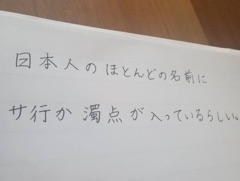 日本人のほとんどの名前に
サ行か濁点が入っているらしい。